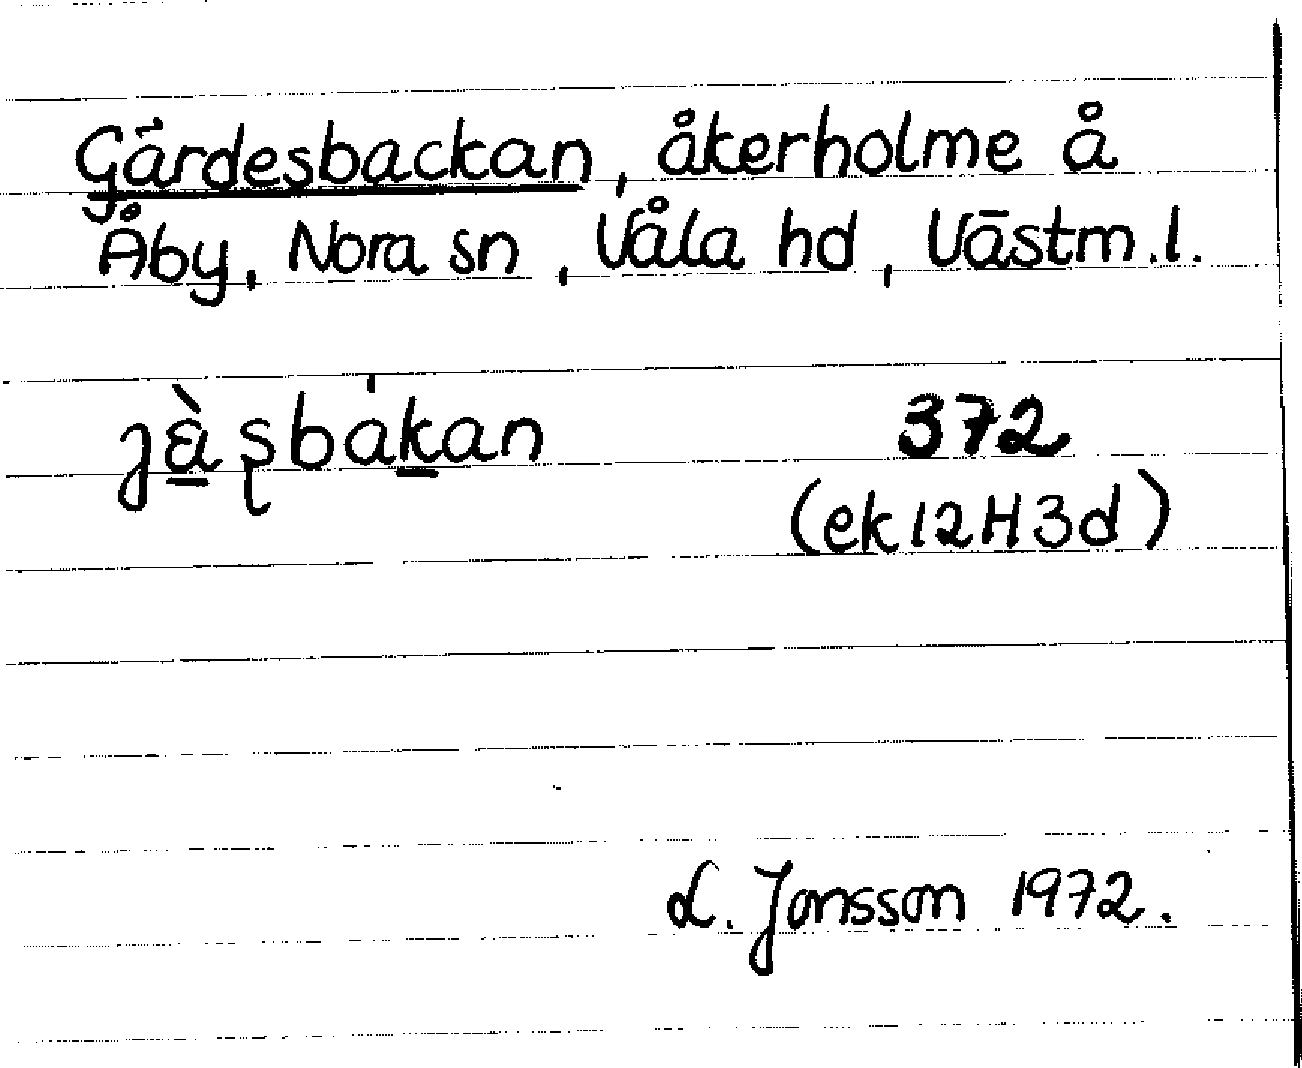 Gärdesbackan, åkerholme å
Åby, Nora sn, Våla hd, Västm.l.
372
(ek 12H3d)
L. Jonsson 1972.